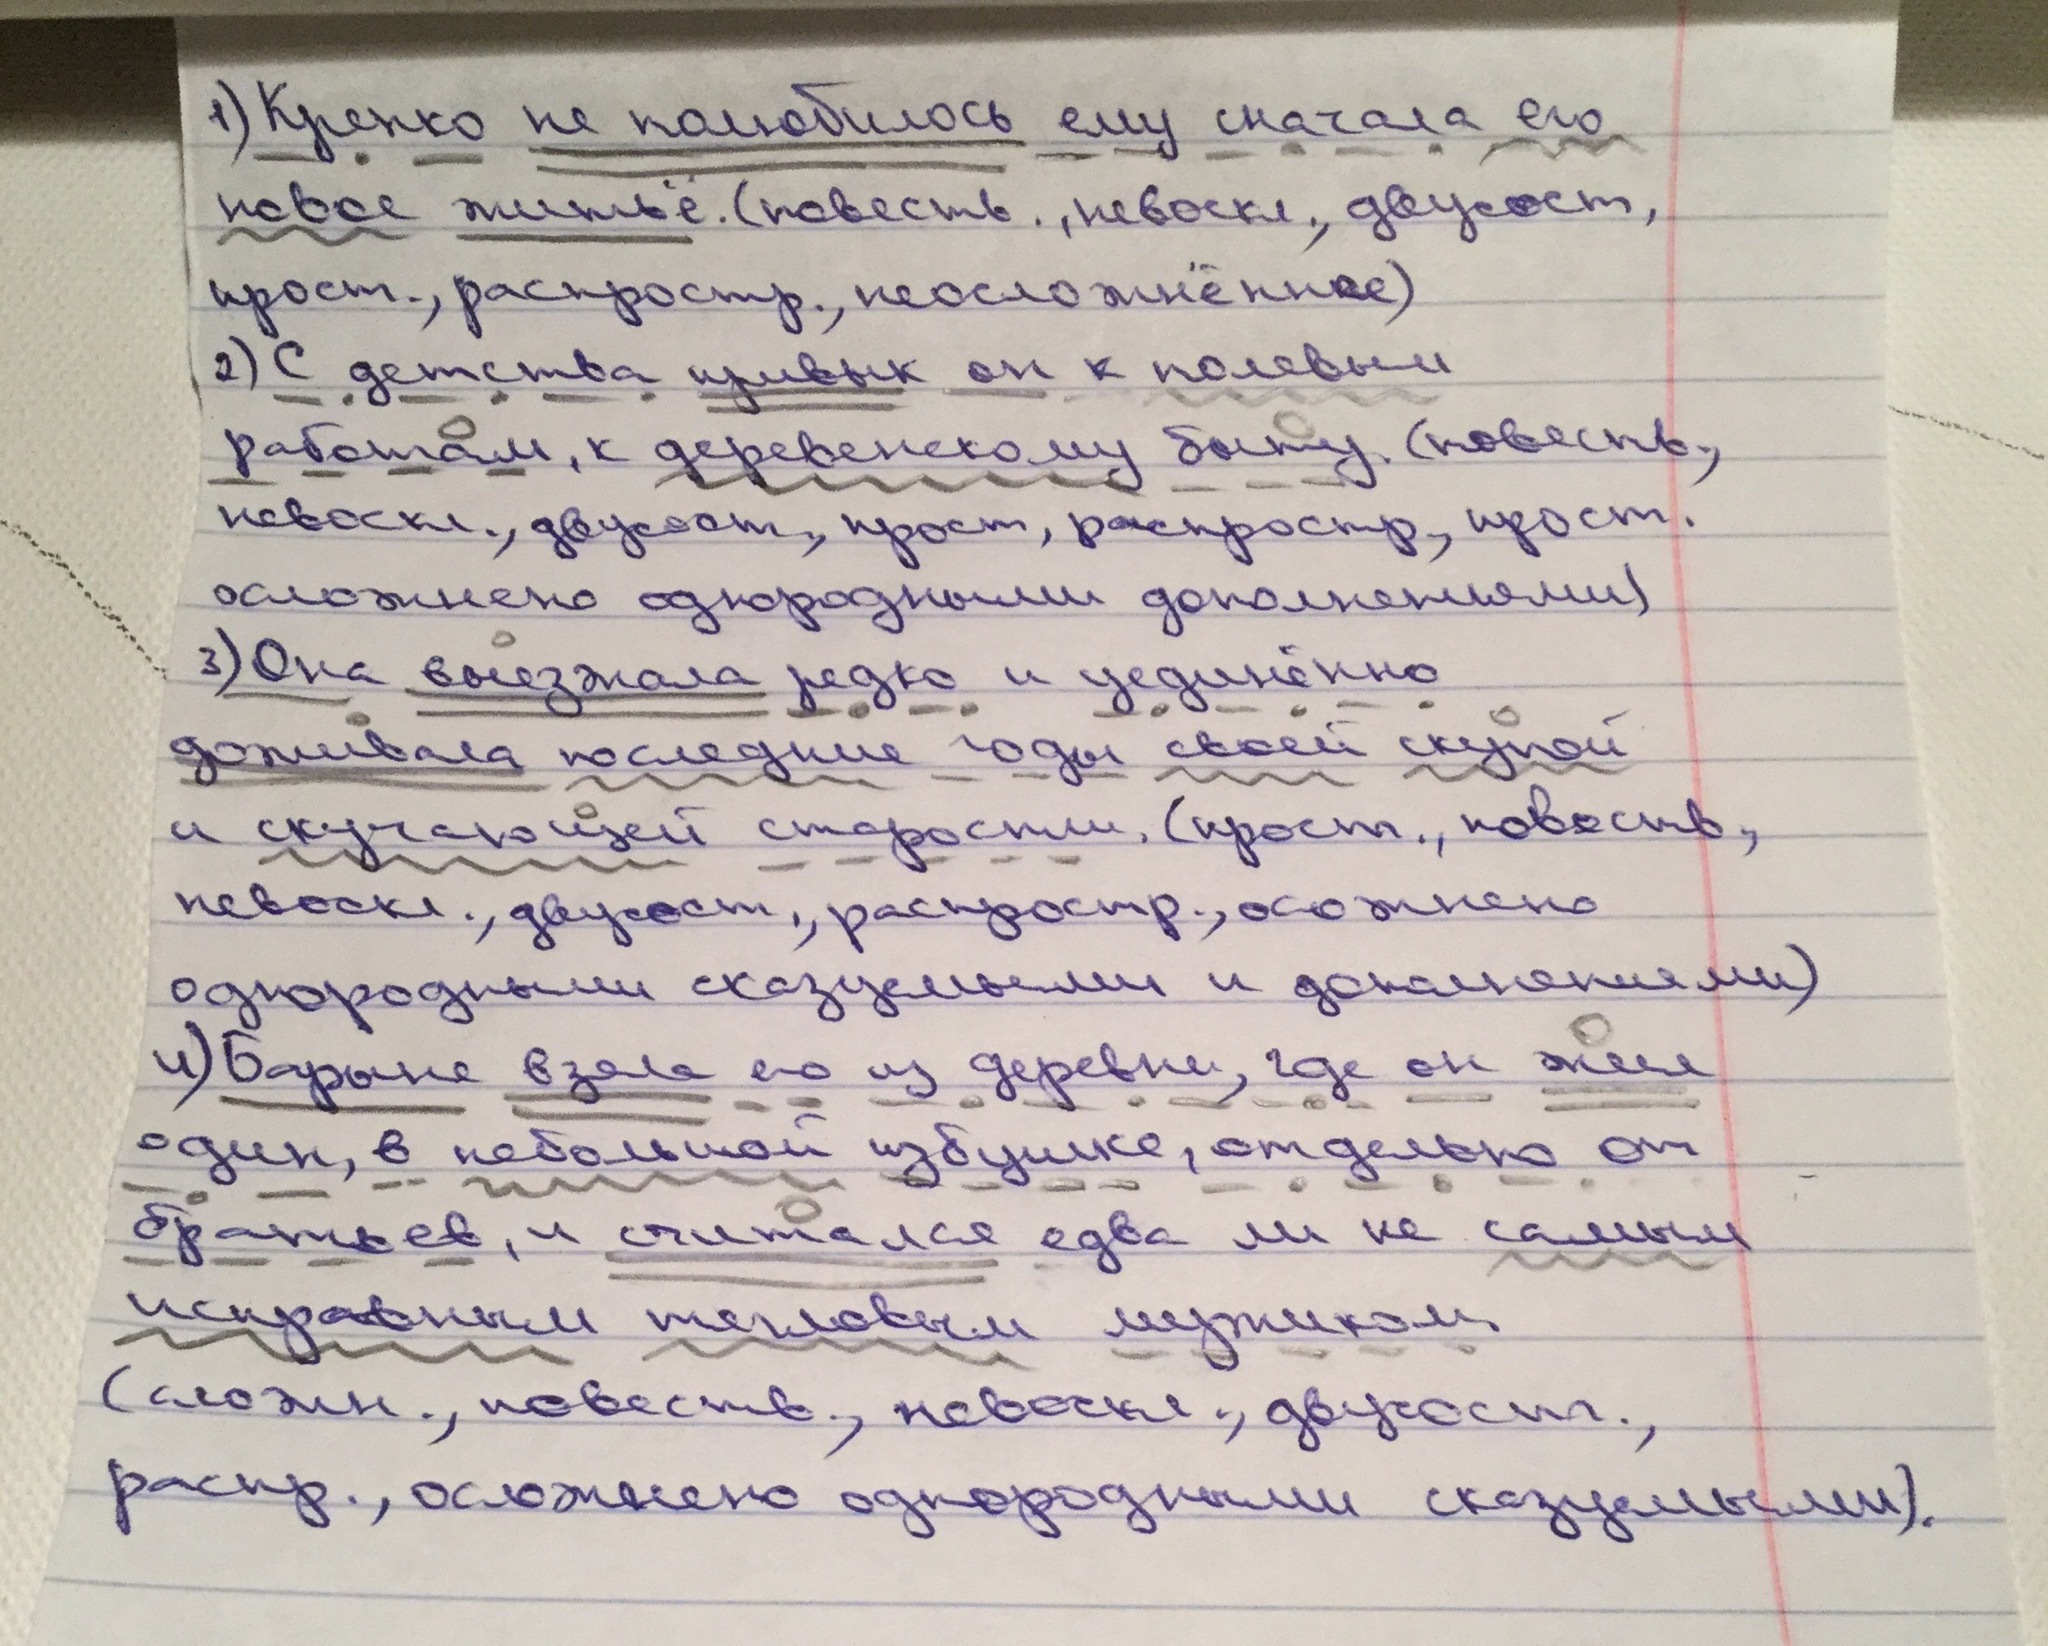 1) Крепко не полюбилось ему сначала его
новое житьё. (повеств., невоскл., двусост,
прост., распростр., неосложнённое)
2) С детства привык он к полевым
работам, к деревенскому быту. (повеств.,
невоскл., двусост., прост, распростр., прост.
осложнено однородными дополнениями)
3) Она выезжала редко и уединённо
доживала последние годы своей скупой
и скучающей старости. (прост., повеств.,
невоскл., двусост., распростр., осожнено
однородными сказуемыми и дополнениями)
4) Барыня взяла его из деревни, где он жил
один, в небольшой избушке, отдельно от
братьев, и считался едва ли не самым
исправным тягловым мужиком.
(сложн., повеств., невоскл., двусост.,
распр., осложнено однородными сказуемыми).